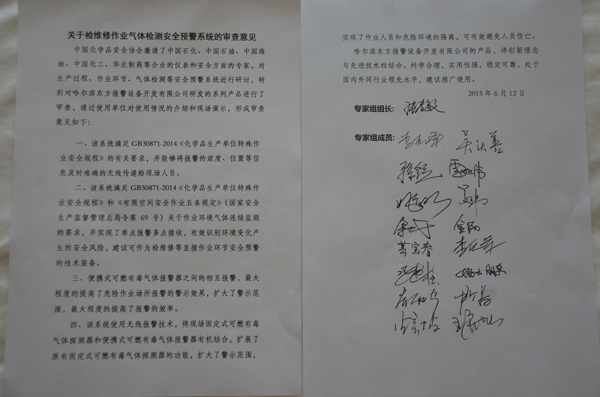 关于检维修作业气体检测安全预警系统的审查意见
中国化学品安全协会邀请了中国石化、中国石油、中国海
油、中国化工、华北制药等企业的仪表和安全方面的专家，对
生产过程、作业环节、气体检测等安全预警系统进行研讨，特
别对哈尔滨东方报警设备开发有限公司研发的系列产品进行了
审查，通过使用单位对使用情况的介绍和现场演示，形成审查
意见如下：
一、该系统满足 GB30871-2014《化学品生产单位特殊作
业安全规程》的有关要求，并能够将报警的浓度、位置等信
息及时准确的无线传递给现场人员。
二、该系统满足 GB30871-2014《化学品生产单位特殊作
业安全规程》和《有限空间安全作业五条规定》（国家安全
生产监督管理总局令第 69 号）关于作业环境气体连续监测
的要求，并实现了单点报警多点接收，有效识别环境变化产
生的安全风险，建议可作为检维修等直接作业环节安全预警
的技术装备。
三、便携式可燃有毒气体报警器之间的相互报警，最大
程度的提高了危险作业场所报警的警示效果，扩大了警示范
围，最大程度的提高了报警的效率。
四、该系统使用无线报警技术，将现场固定式可燃有毒
气体探测器和便携式可燃有毒气体报警器有机结合，扩展了
原有固定式可燃有毒气体探测器的功能，扩大了警示范围，
实现了作业人员和危险环境的隔离，可有效避免人员伤亡。
哈尔滨东方报警设备开发有限公司的产品，将创新理念
与先进技术相结合，科学合理，实用性强，稳定可靠，处于
国内外同行业领先水平，建议推广使用。
2015 年 6 月 12 日
专家组组长：
专家组成员：